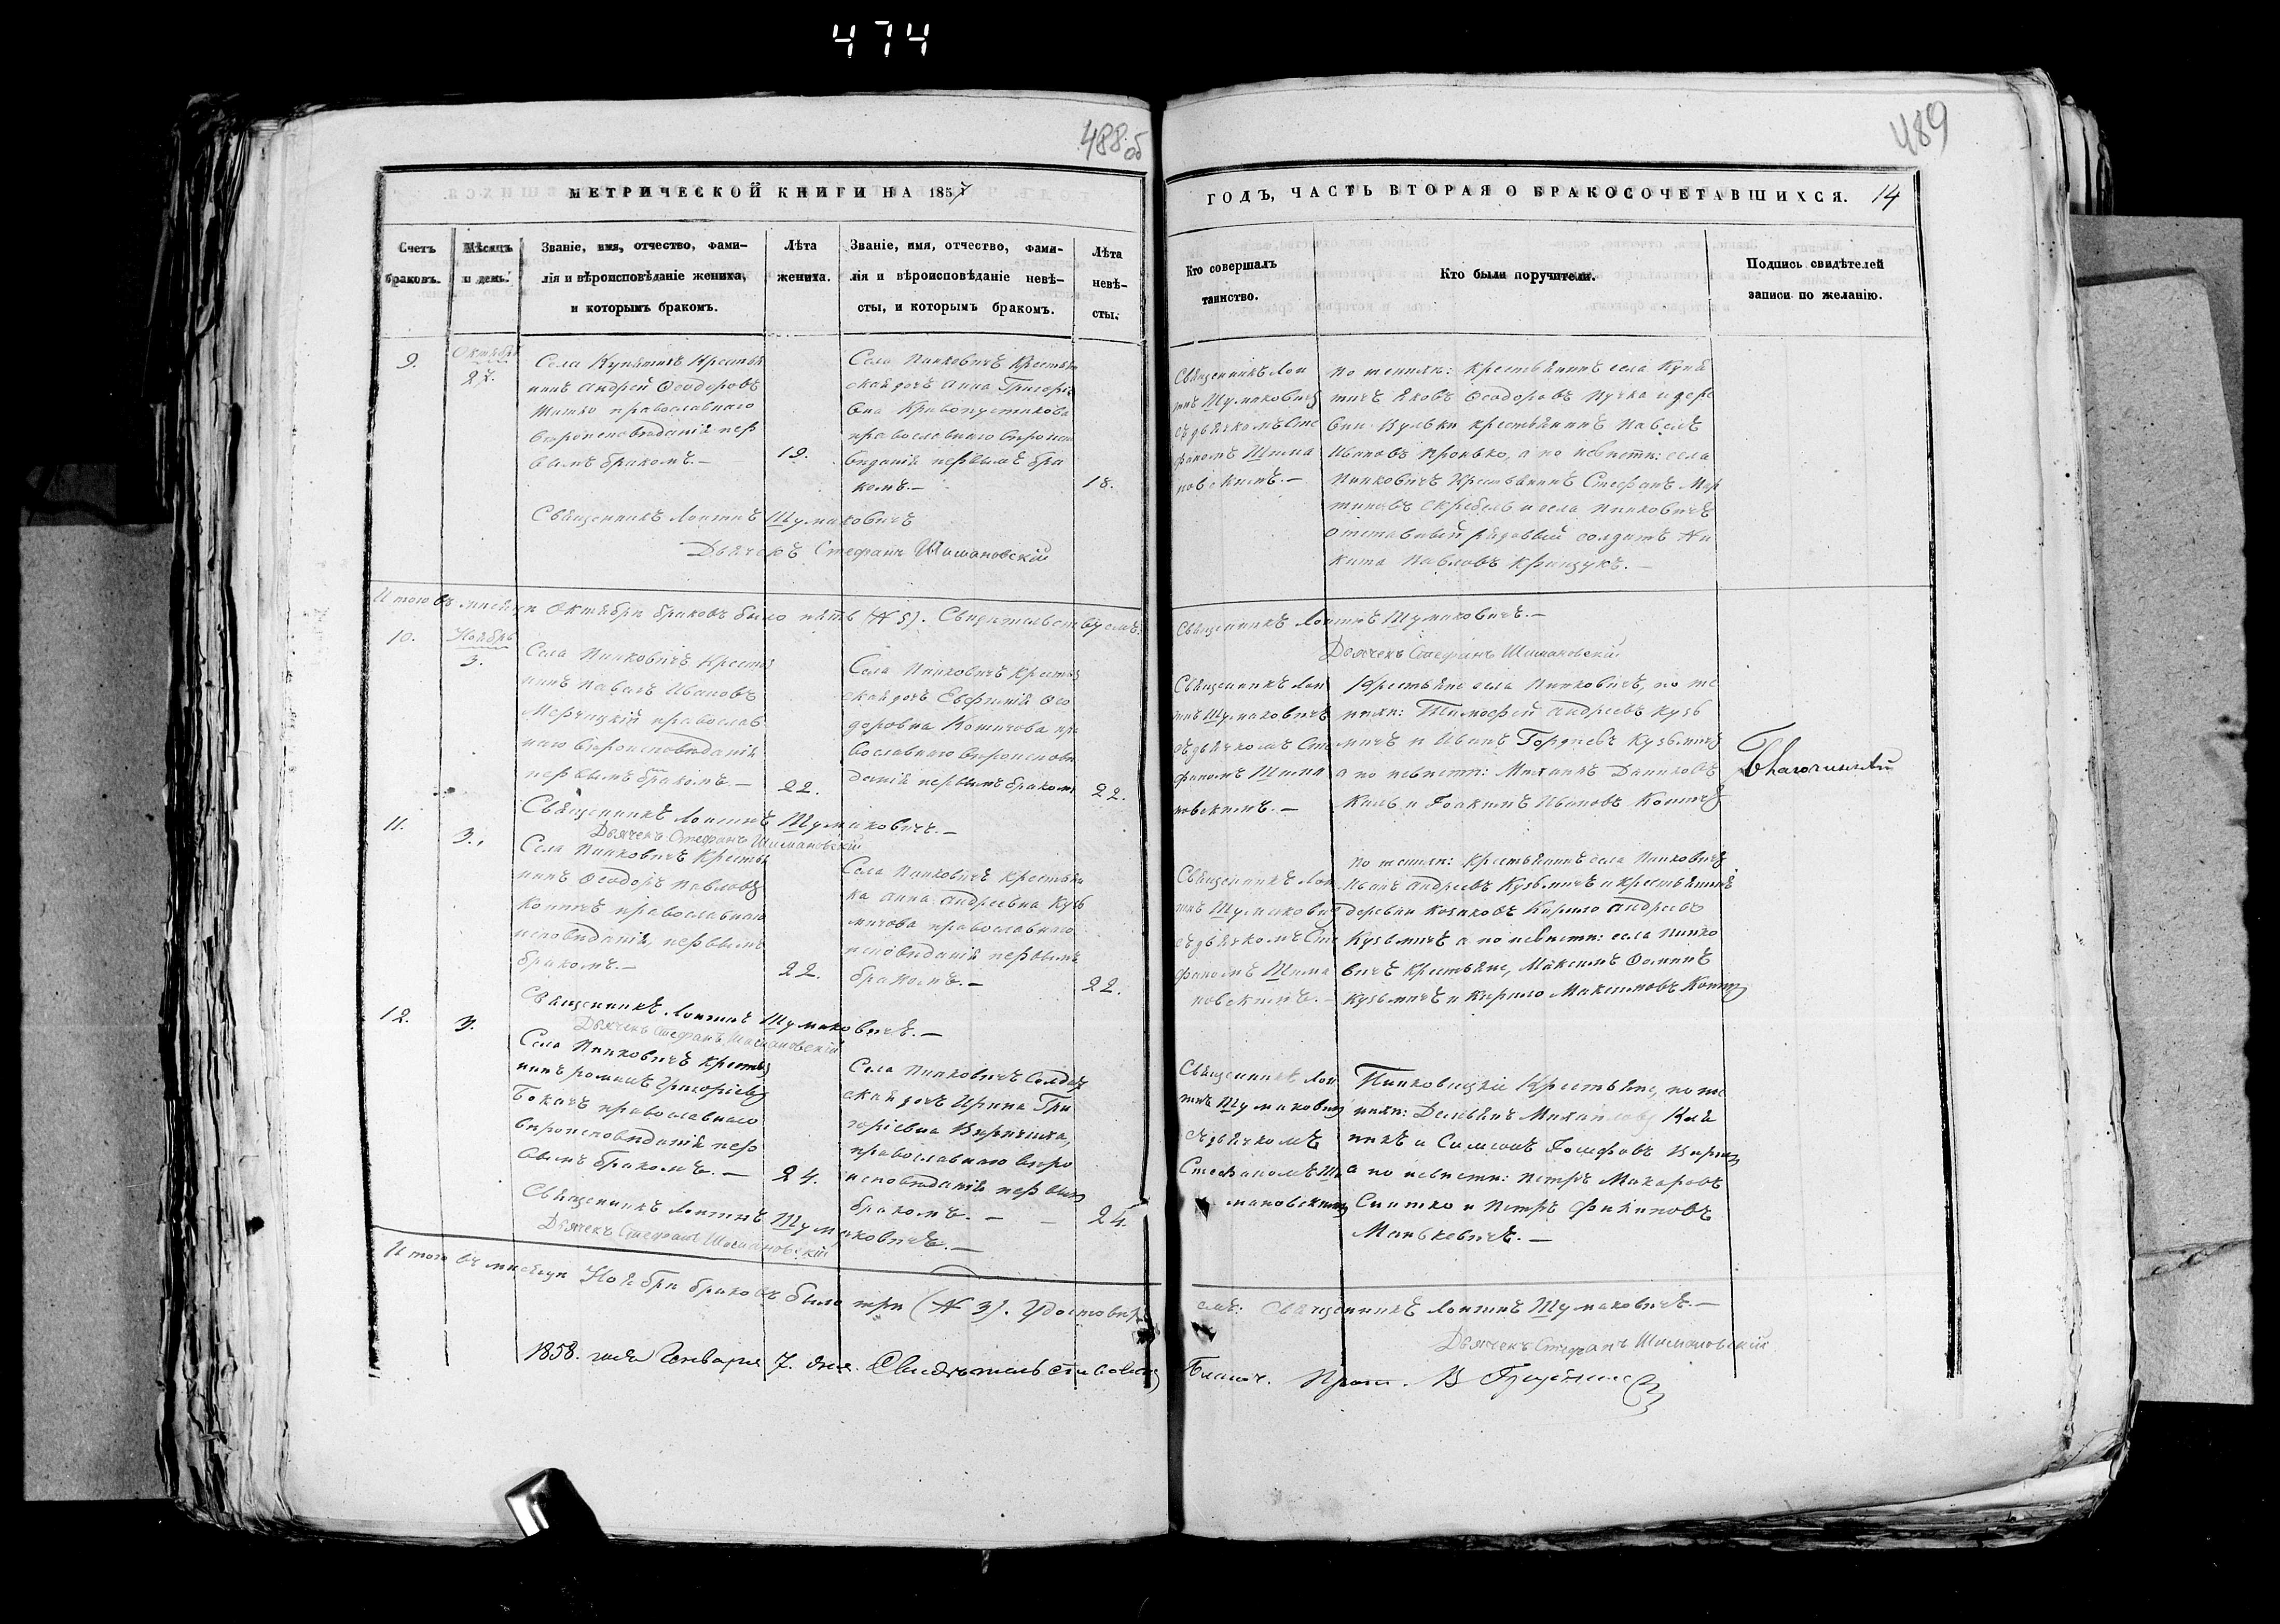 474
488 об
489
МЕТРИЧЕСКОЙ КНИГИ НА 1857
ГОДЪ, ЧАСТЬ ВТОРАЯ О БРАКОСОЧЕТАВШИХСЯ. 14
Счетъ
браковъ.
Мѣсяцъ
и день.
Званіе, имя, отчество, фами-
лія и вѣроисповѣданіе жениха,
и которымъ бракомъ.
Лѣта
жениха.
Званіе, имя, отчество, фами-
лія и вѣроисповѣданіе невѣ-
сты, и которымъ бракомъ.
Лѣта
невѣ-
сты.
Кто совершалъ
таинство.
Кто были поручители.
Подпись свидѣтелей
записи по желанію.
9.
Октября
27.
Села Купятичъ Крестья
нинъ Андрей Ѳеодоровъ
православнаго
вѣроисповѣданія пер
вымъ бракомъ.—
19.
Села Пинковичъ Крестьян
ская дочь Анна Григорье
вна Кривопустикова
православнаго вѣроиспо
вѣданія первымъ бра
комъ.—
18.
Священникъ Лон
гинъ Шумаковичъ
съ дьячкомъ Сте
фаномъ Шима
новскимъ.—
По женихѣ: крестьянинъ села Купя
тичъ Яковъ Ѳеодоровъ и дере
вни Вульки крестьянинъ Павелъ
Ивановъ Пронько, а по невѣстѣ: села
Пинковичъ Крестьянинъ Стефанъ Мар
тиновъ и села Пинковичъ
отставный рядовый солдатъ Ни
кита Павловъ
Священникъ Лонгинъ Шумаковичъ
Дьячекъ Стефанъ Шимановскій
Итого въ мѣсяцѣ Октябрѣ браковъ было пять (№ 5). Свидѣтельствуемъ:
Священникъ Лонгинъ Шумаковичъ.—
Дьячекъ Стефанъ Шимановскій
10.
Ноябрь
3.
Села Пинковичъ Крестья
нинъ Павелъ Ивановъ
православ
наго вѣроисповѣданія
первымъ бракомъ.—
22.
Села Пинковичъ Крестья
ская дочь Евфимія Ѳео
доровна Копичова пра
вославнаго вѣроисповѣ
данія первымъ бракомъ
22.
Священникъ Лон
гинъ Шумаковичъ
съ дьячкомъ Сте
фаномъ Шима
новскимъ.—
Крестьяне села Пинковичъ, по же
нихѣ: Тимофей Андреевъ Кузь
мичъ и Иванъ Гордіевъ Кузьмичъ
а по невѣстѣ: Михаилъ Даниловъ
и Іоакимъ Ивановъ
Благочинный
Священникъ Лонгинъ Шумаковичъ.—
Дьячекъ Стефанъ Шимановскій
11.
3.
Села Пинковичъ Крестья
нинъ Ѳеодоръ Павловъ
православнаго
исповѣданія, первымъ
бракомъ.—
22.
Села Пинковичъ Крестьян
ка Анна Андреевна Кузь
мичова православнаго
исповѣданія первымъ
бракомъ.—
22.
Священникъ Лон
гинъ Шумаковичъ
съ дьячкомъ Сте
фаномъ Шима
новскимъ.—
По женихѣ: крестьянинъ села Пинковичъ
Иванъ Андреевъ Кузьмичъ и крестьянинъ
деревни Козляковъ Кирило Андреевъ
Кузьмичъ а по невѣстѣ: села Пинко
вичъ Крестьяне, Максимъ Ѳоминъ
Кузьмичъ и Кирило Максимовъ
Священникъ Лонгинъ Шумаковичъ.—
Дьячекъ Стефанъ Шимановскій
12.
3.
Села Пинковичъ Крестья
нинъ Романъ Григоріевъ
Бокачъ православнаго
вѣроисповѣданія пер
вымъ бракомъ.—
24.
Села Пинковичъ Солдат
ская дочь Ирина Гри
горіевна
православнаго вѣро
исповѣданія первымъ
бракомъ.—
24.
Священникъ Лон
гинъ Шумаковичъ
съ дьячкомъ
Стефаномъ Ши
мановскимъ
Пинковицкіе Крестьяне, по же
нихѣ: Демьянъ Михаиловъ
и Самсонъ Іосифовъ
а по невѣстѣ: Петръ Макаровъ
и Петръ Филиповъ
Манькевичъ.—
Священникъ Лонгинъ Шумаковичъ.—
Дьячекъ Стефанъ Шимановскій
Итого въ мѣсяцѣ Ноябрѣ браковъ было три (№ 3). Удостовѣряемъ: Священникъ Лонгинъ Шумаковичъ.—
Дьячекъ Стефанъ Шимановскій
1858. года Января 7. дня. Свидѣтельствовалъ Благоч. Прот. В